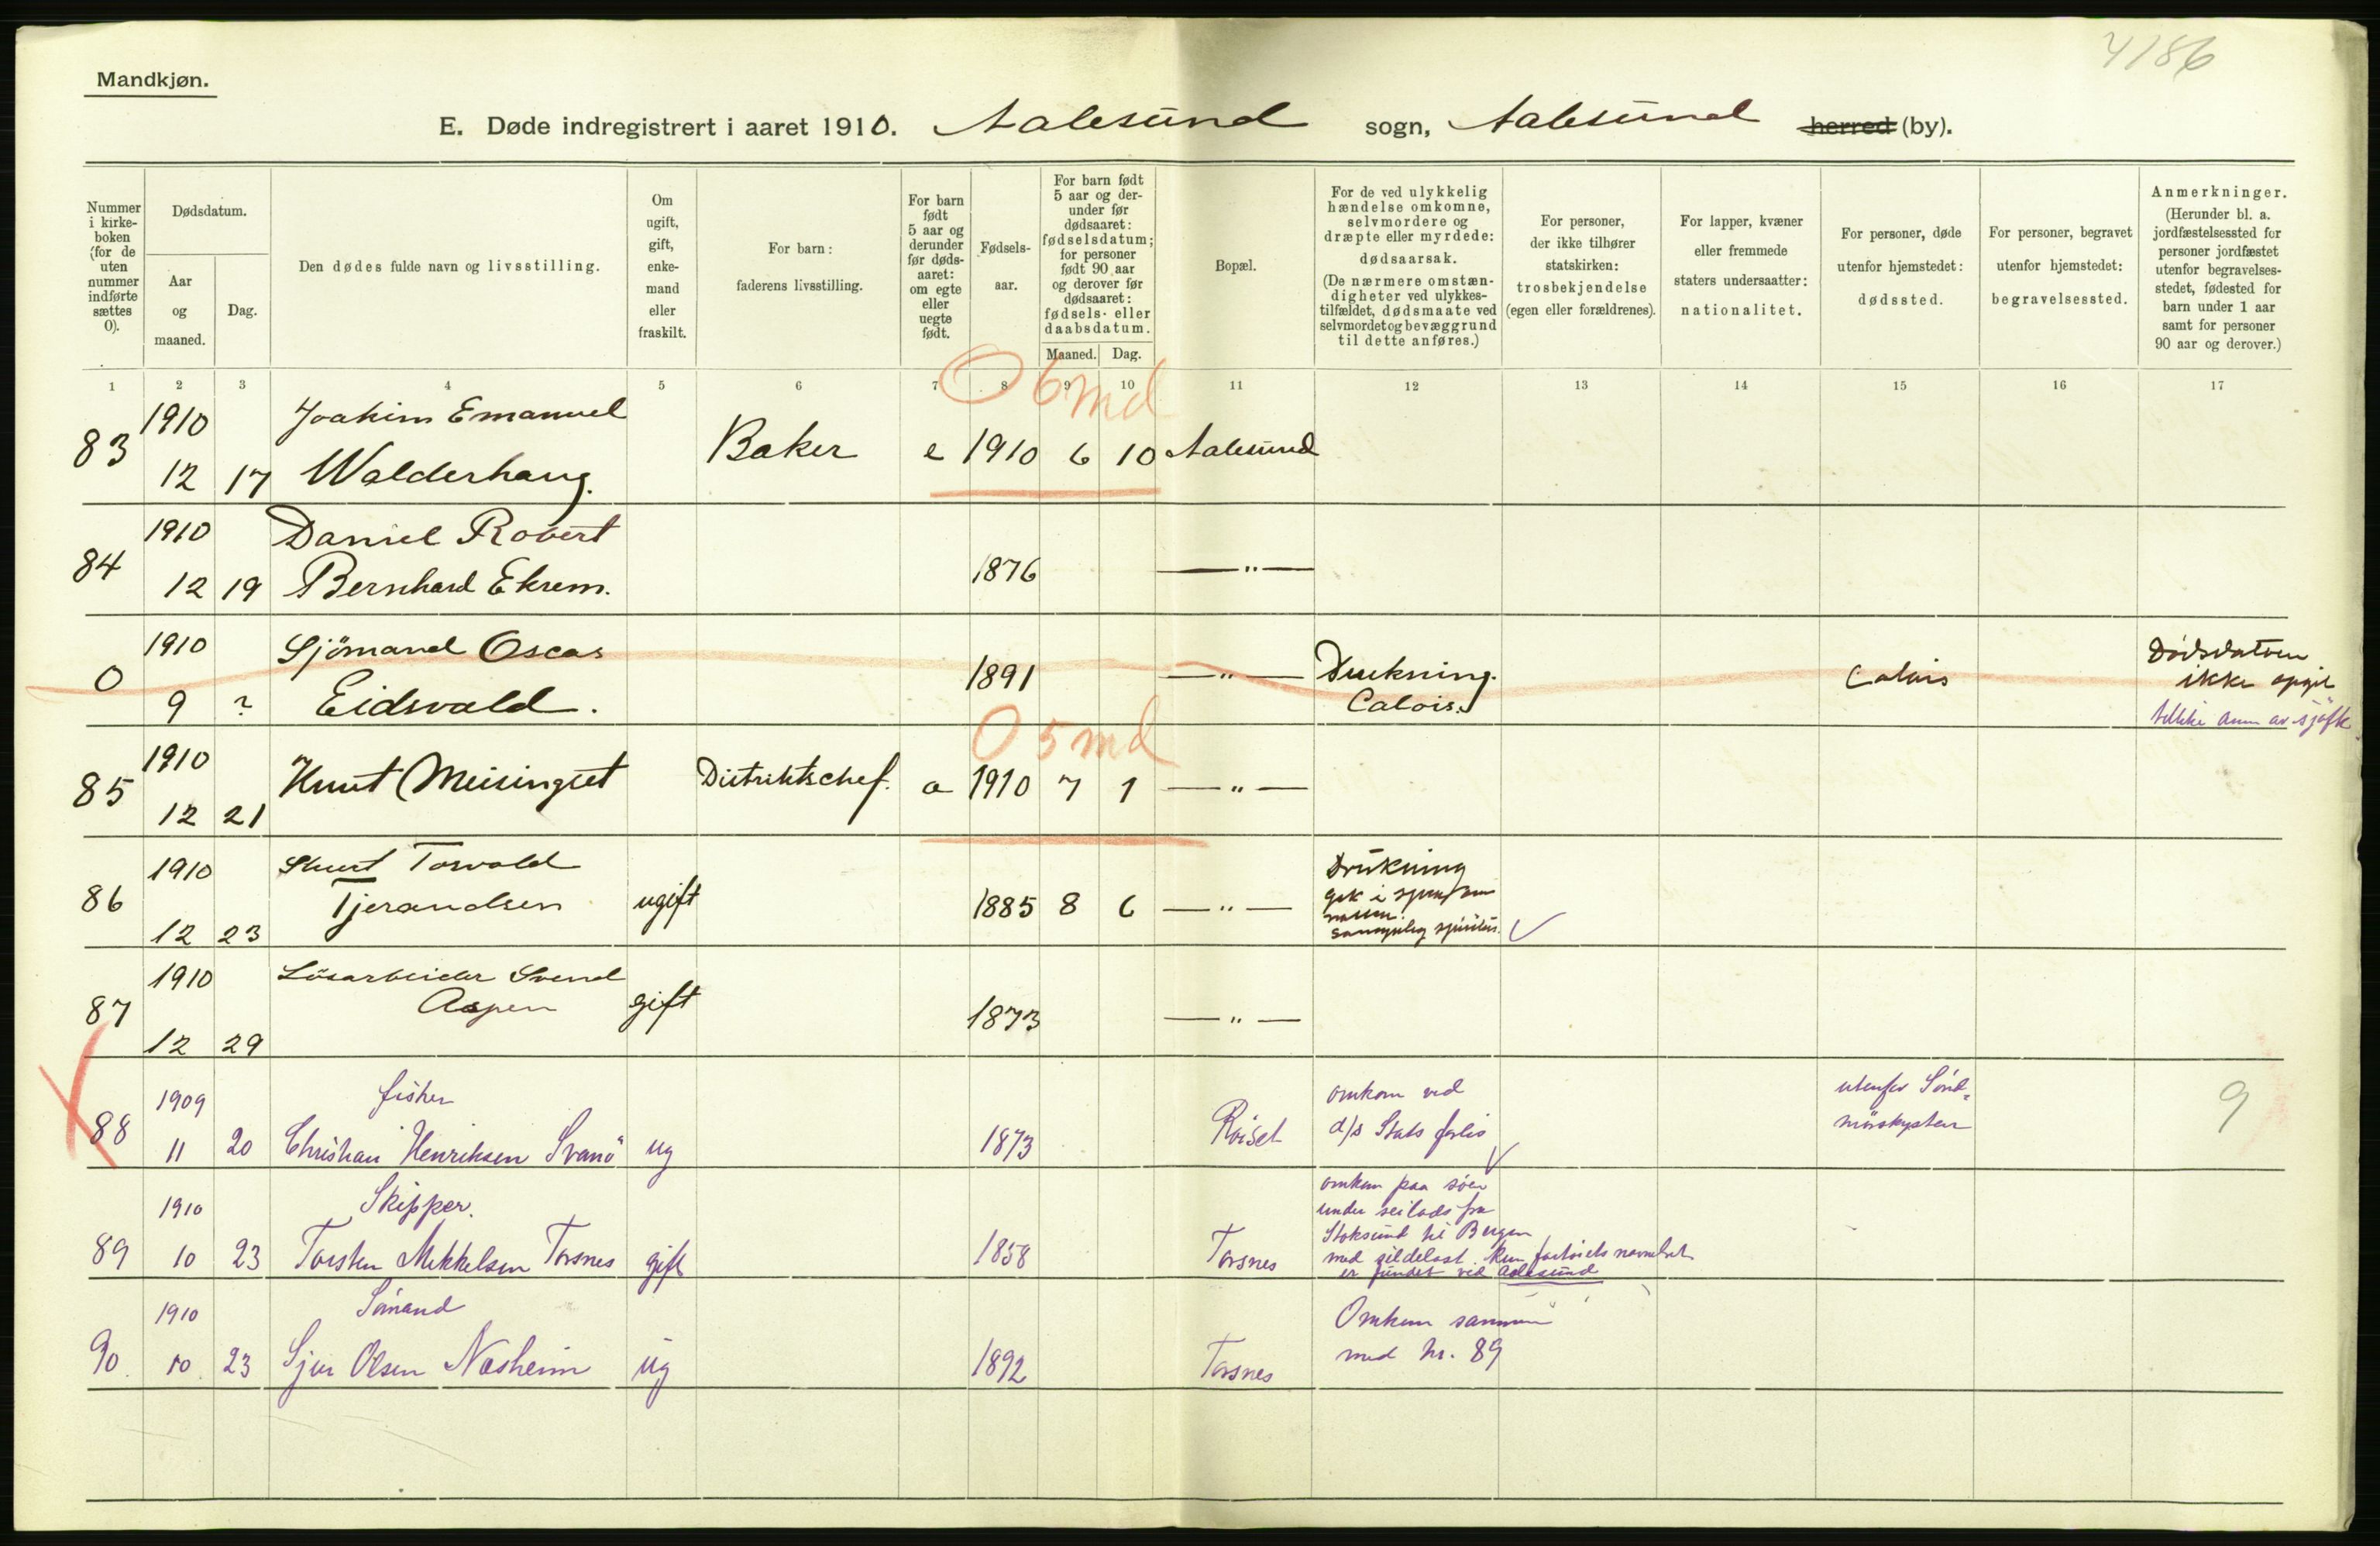 4186
Mandkjøn.
E. Døde indregistrert i aaret 1910. Aalesund sogn, Aalesund herred (by).
Nummer i kirke-boken (for de uten nummer indførte sættes 0).
Dødsdatum.
Aar og maaned.
Dag.
Den dødes fulde navn og livsstilling.
Om ugift, gift, enke-mand eller fraskilt.
For barn: faderens livsstilling.
For barn født 5 aar og derunder før døds-aaret: om egte eller uegte født.
Fødsels-aar.
For barn født 5 aar og der-under før dødsaaret: fødselsdatum; for personer født 90 aar og derover før dødsaaret: fødsels- eller daabsdatum.
Maaned. Dag.
Bopæl.
For de ved ulykkelig hændelse omkomne, selvmordere og dræpte eller myrdede: dødsaarsak.
(De nærmere omstæn-digheter ved ulykkes-tilfældet, dødsmaate ved selvmordet og bevæggrund til dette anføres.)
For personer, der ikke tilhører statskirken: trosbekjendelse (egen eller forældrenes).
For lapper, kvæner eller fremmede staters undersaatter: nationalitet.
For personer, døde utenfor hjemstedet: dødssted.
For personer, begravet utenfor hjemstedet: begravelsessted.
Anmerkninger.
(Herunder bl. a. jordfæstelsessted for personer jordfæstet utenfor begravelses-stedet, fødested for barn under 1 aar samt for personer 90 aar og derover.)
1 2 3 4 5 6 7 8 9 10 11 12 13 14 15 16 17
0 6 md
83 1910 12 17 Joakim Emanuel
Walderhaug. Baker e 1910 6 10 Aalesund
84 1910 12 19 Daniel Robert
Bernhard Ekrem. 1876 — " —
0 1910 9 ? Sjömand Oscar
Eidsvald. 1891 — " — Drukning.
Calais. Calais Dödsdatum
ikke opgit
tillike anm av sjöfk.
0 5 md
85 1910 12 21 Knut Meisingset Distriktschef. e 1910 7 1 — " —
86 1910 12 23 Knut Torvald
Tjerandsen ugift 1885 8 6 — " — Drukning
gik i sjøen
87 1910 12 29 Lösarbeider Svend
Aspen gift 1873 — " —
88 1909 11 20 fisker
Christian Henriksen Svanö ug 1873 Röiset omkom ved
d/s Stats forlis utenfor Sönd-
mörskysten 9
89 1910 10 23 Skipper.
Torsten Mikkelsen Torsnes gift 1858 Torsnes omkom paa söen
under seilads fra
Stoksund til Bergen
med sildelast. Kun fartöiets navnebret
er fundet ved Aalesund
90. 1910 10 23 Sömand
Sjur Olsen Næsheim ug 1892 Torsnes Omkom sammen
med nr. 89